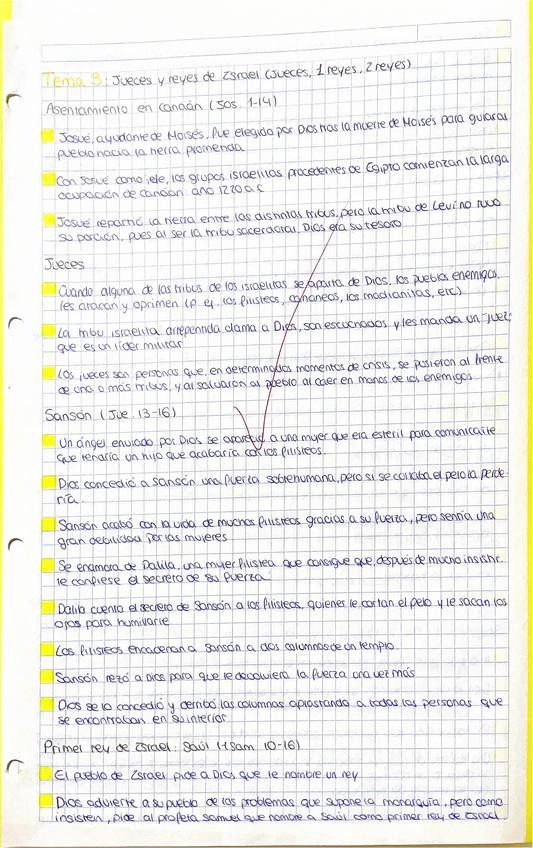 Tema 3: Jueces y reyes de Israel (Jueces, 1 reyes, 2 reyes)
Asentamiento en Canaán (Jos. 1-14)
Josué, ayudante de Moisés, fue elegido por Dios tras la muerte de Moisés para guiar a su
pueblo hacia la tierra prometida
Con Josué como jefe, los grupos israelitas procedentes de Egipto comienzan la larga
ocupación de Canaán año 1220 a.C
Josué repartió la tierra entre las distintas tribus, pero la tribu de Leví no tuvo
su porción, pues al ser la tribu sacerdotal, Dios era su tesoro
Jueces
Cuando alguna de las tribus de los israelitas se aparta de Dios, los pueblos enemigos,
les atacan y oprimen (p. ej. los filisteos, cananeos, los madianitas, etc)
La tribu israelita arrepentida clama a Dios, son escuchados y les manda un "juez"
que es un líder militar
Los jueces son personas que, en determinados momentos de crisis, se pusieron al frente
de una o más tribus, y al salvaron al pueblo al caer en manos de los enemigos
Sansón (Jue. 13-16)
Un ángel enviado por Dios se apareció a una mujer que era estéril para comunicarle
que tendría un hijo que acabaría con los filisteos.
Dios concedió a Sansón una fuerza sobrehumana, pero si se cortaba el pelo la perde-
ría.
Sansón acabó con la vida de muchos filisteos gracias a su fuerza, pero sentía una
gran debilidad por las mujeres
Se enamora de Dalila, una mujer filistea que consigue que, después de mucho insistir,
le confiese el secreto de su fuerza
Dalila cuenta el secreto de Sansón a los filisteos, quienes le cortan el pelo y le sacan los
ojos para humillarle
Los filisteos encadenan a Sansón a dos columnas de un templo.
Sansón rezó a Dios para que le devolviera la fuerza una vez más
Dios se lo concedió y derribó las columnas aplastando a todas las personas que
se encontraban en su interior
Primer rey de Israel: Saúl (1 Sam 10-16)
El pueblo de Israel pide a Dios que le nombre un rey
Dios advierte a su pueblo de los problemas que supone la monarquía, pero como
insisten, pide al profeta Samuel que nombre a Saúl como primer rey de Israel